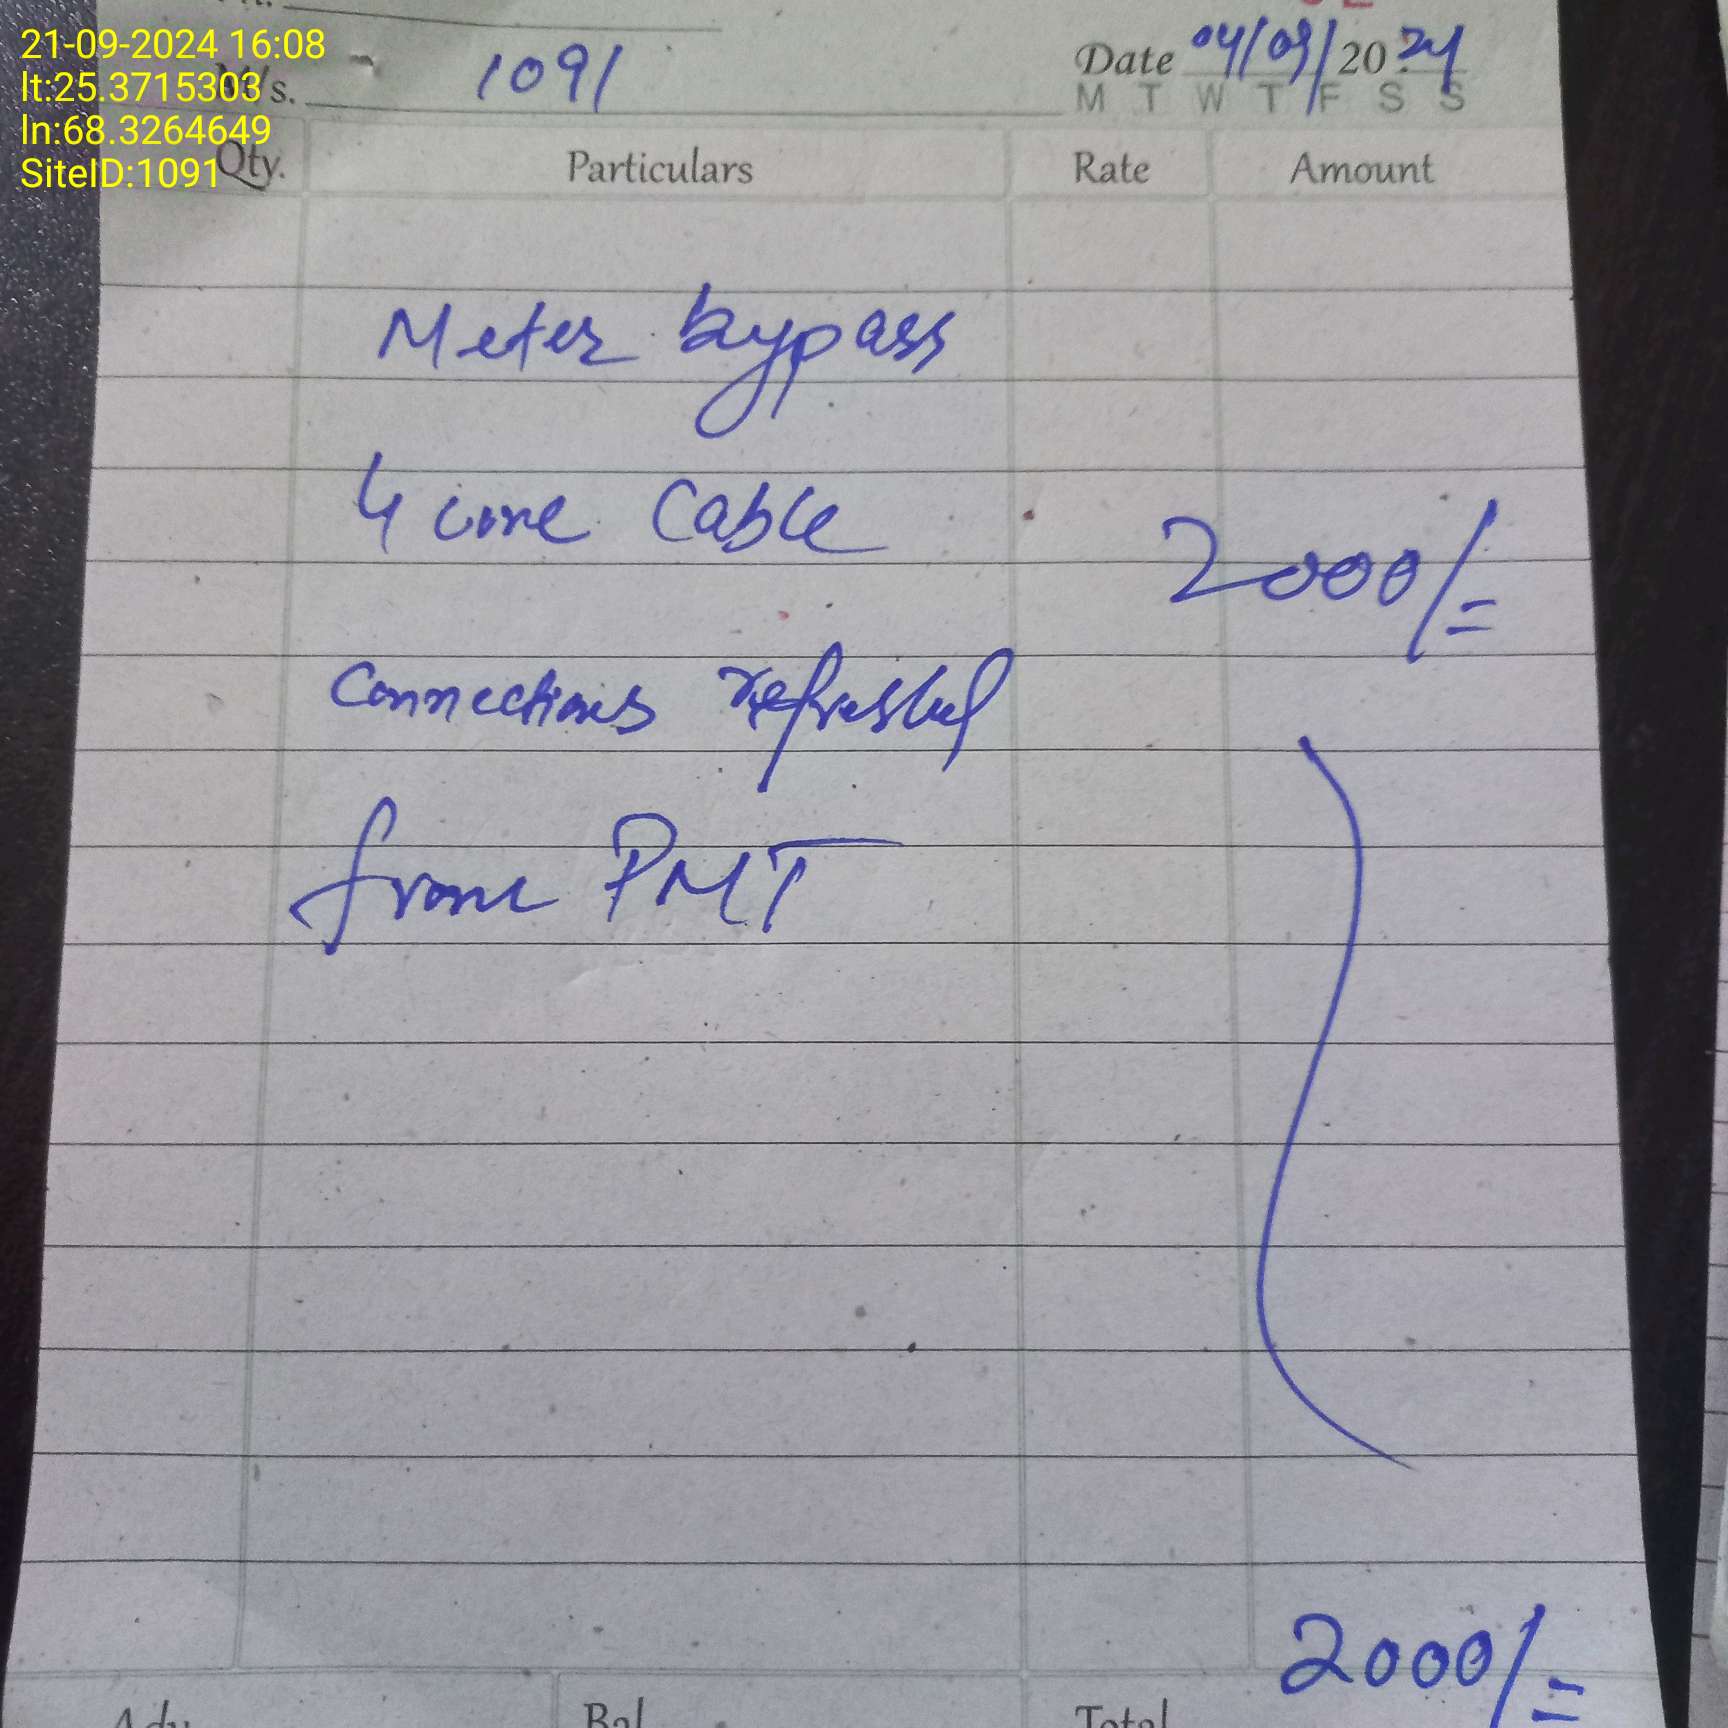 21-09-2024 16:08
lt:25.3715303
ln:68.3264649
SiteID:1091
M/s. 1091
Date 04/09/2024
M T W T F S S
Qty. Particulars Rate Amount
Meter bypass
4 core Cable 2000/=
Connections refreshed
from PMT
2000/=
Adv. Bal. Total